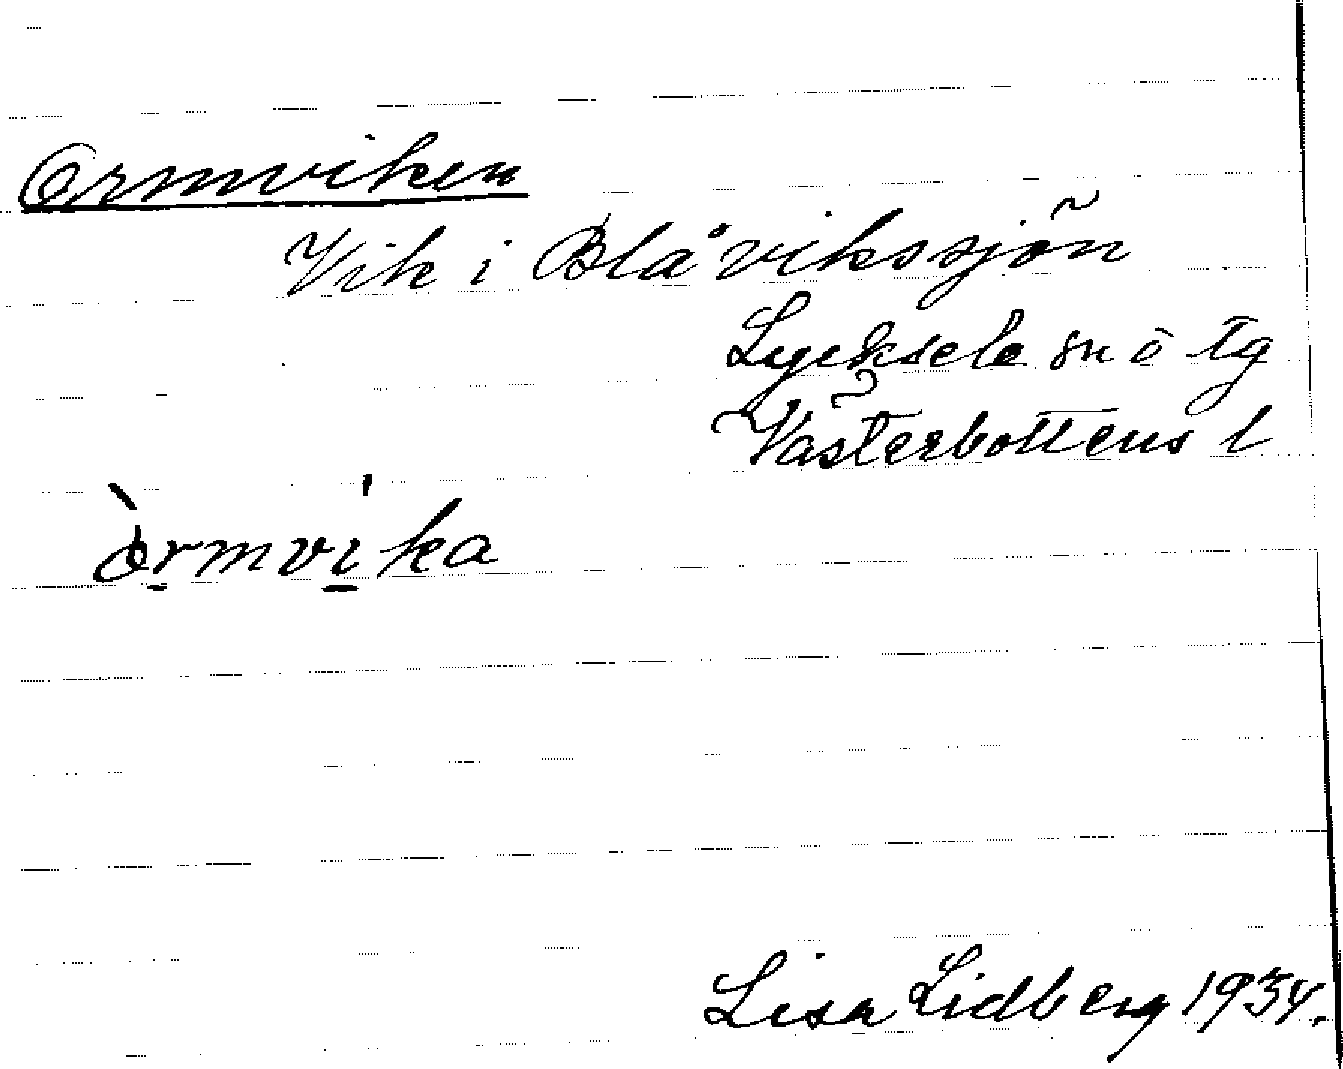 Ormviken
Vik i Blåvikssjön
Lycksele sn o tg
Västerbottens l
òrmvika
Lisa Lidberg 1934.